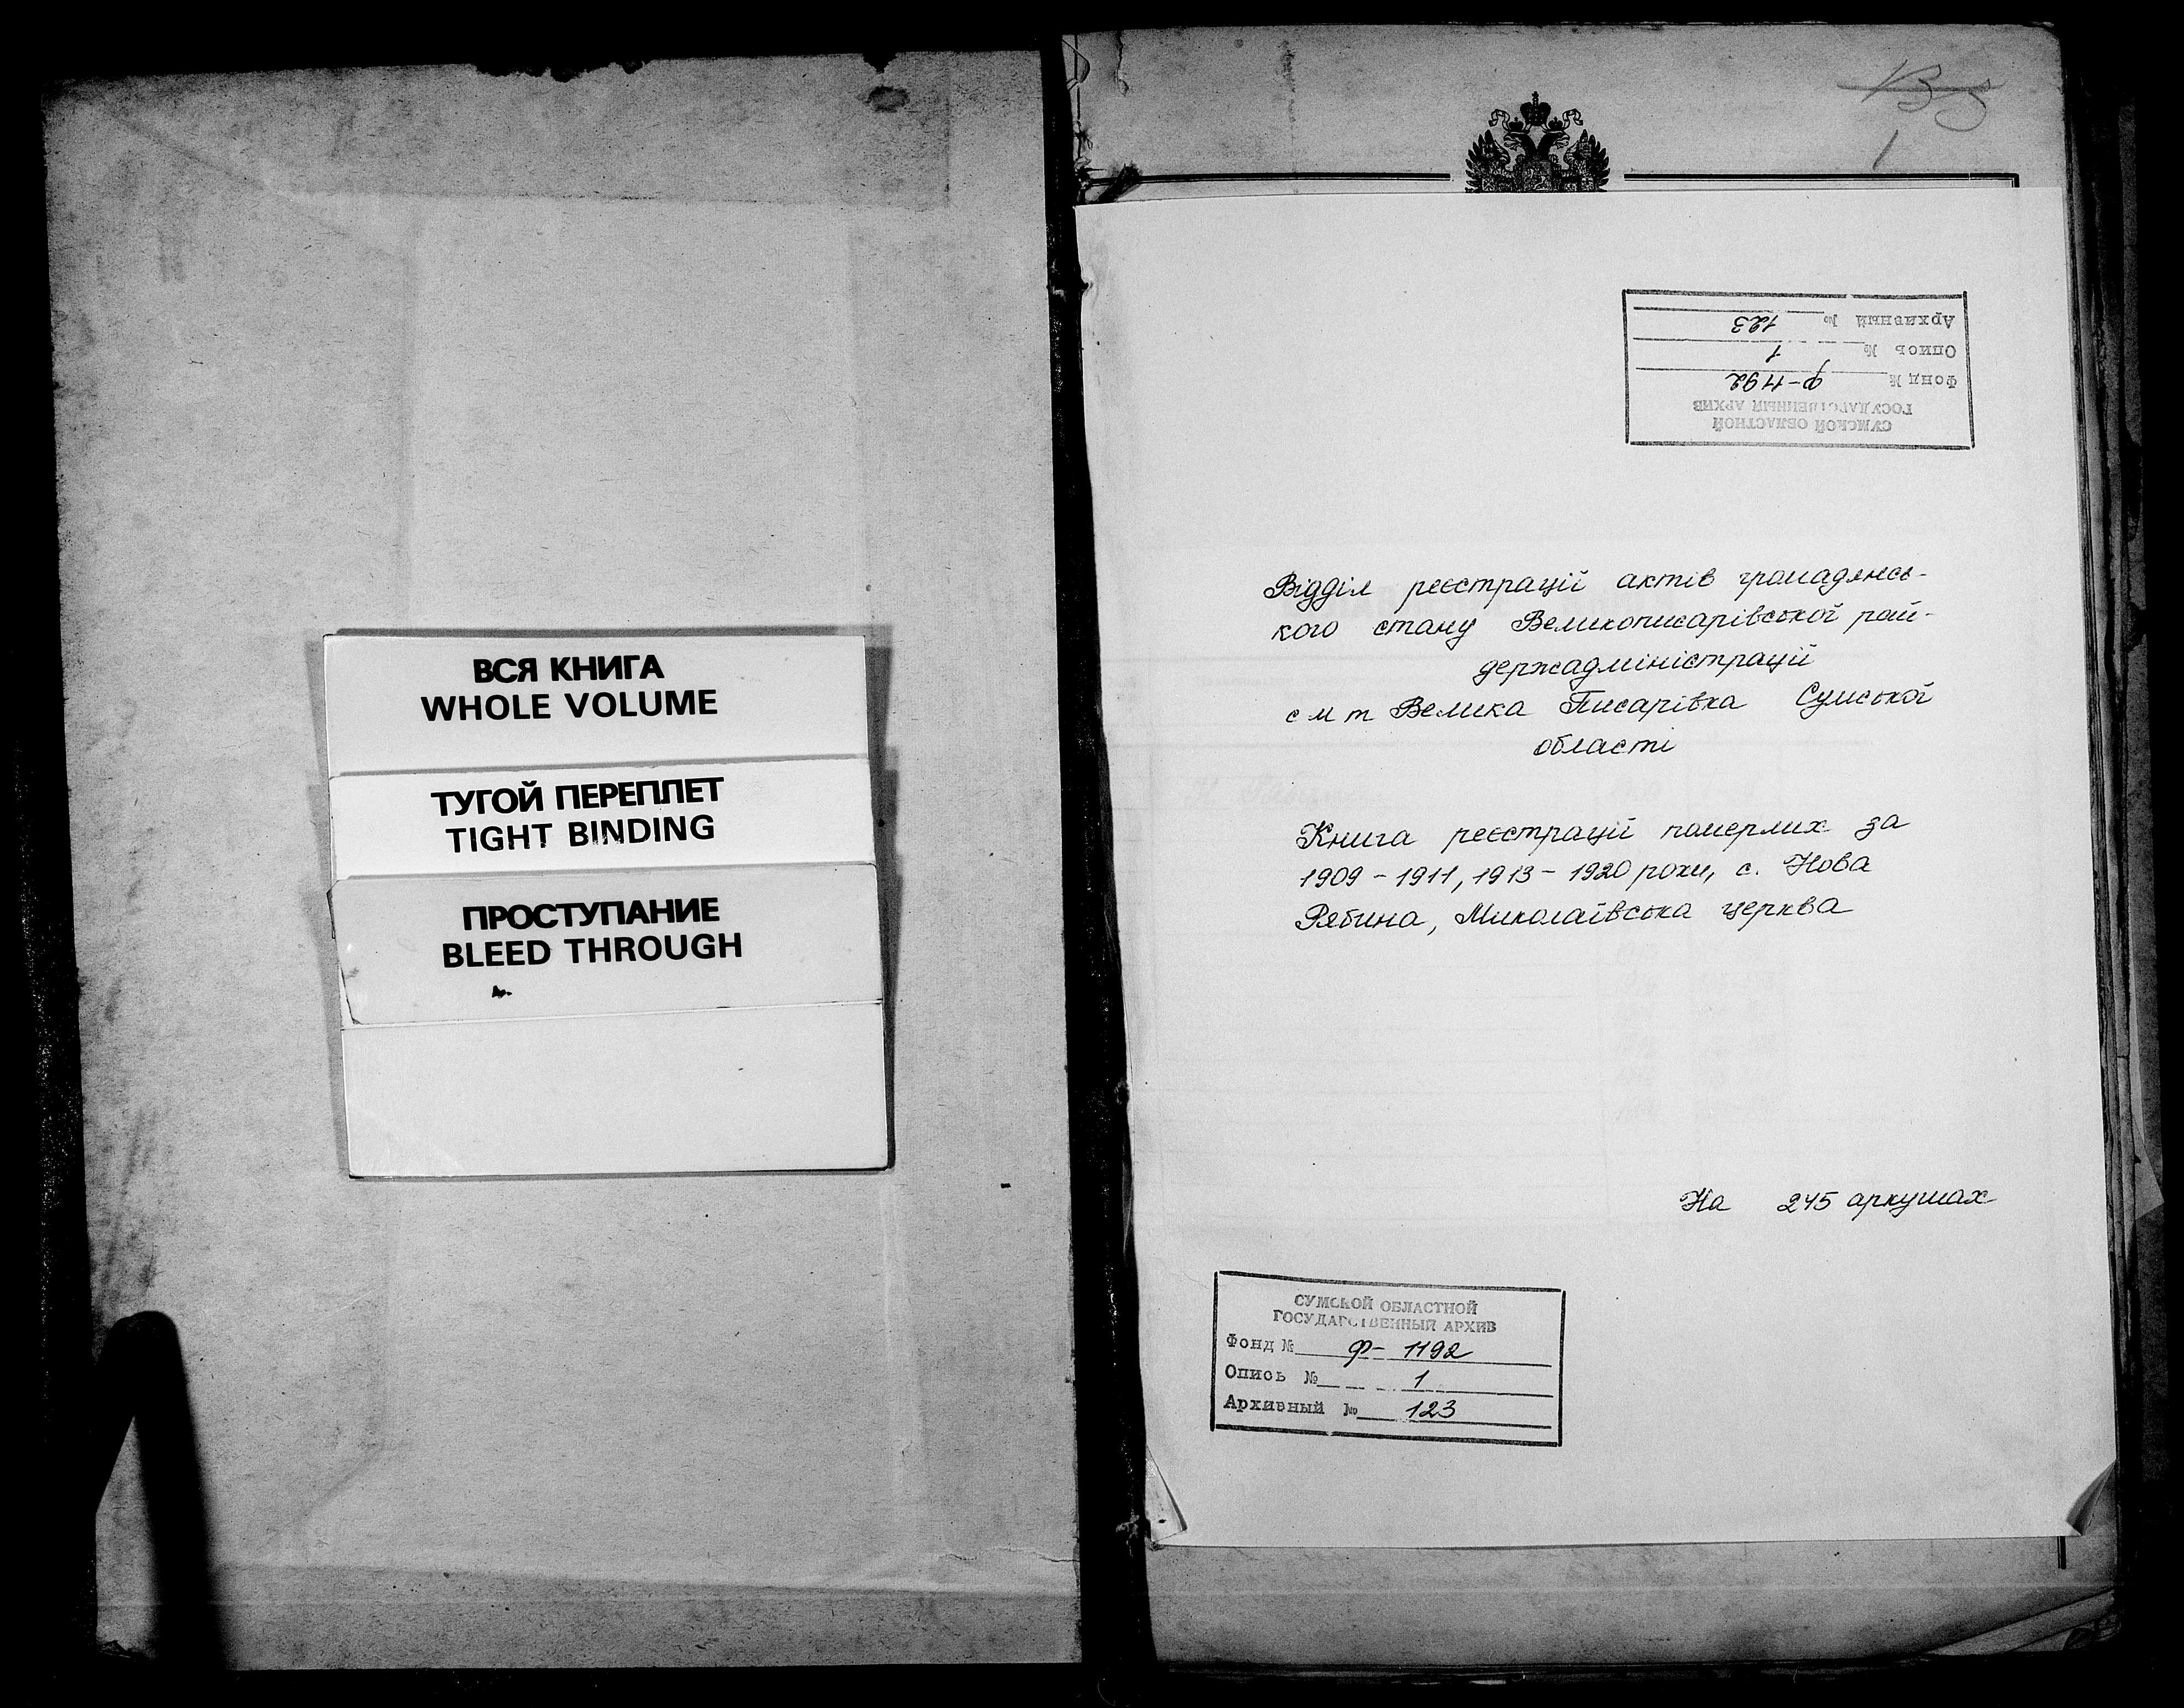 ВСЯ КНИГА
WHOLE VOLUME
ТУГОЙ ПЕРЕПЛЕТ
TIGHT BINDING
ПРОСТУПАНИЕ
BLEED THROUGH
1
СУМСКОЙ ОБЛАСТНОЙ
ГОСУДАРСТВЕННЫЙ АРХИВ
Фонд № Ф-1192
Опись № 1
Архивный № 123
Відділ реєстрації актів громадянсь-
кого стану Великописарівської рай-
держадміністрації
смт Велика Писарівка Сумської
області
Книга реєстрації померлих за
1909-1911, 1913-1920 роки, с. Нова
Рябина, Миколаївська церква
На 245 аркушах
СУМСКОЙ ОБЛАСТНОЙ
ГОСУДАРСТВЕННЫЙ АРХИВ
Фонд № Ф-1192
Опись № 1
Архивный № 123